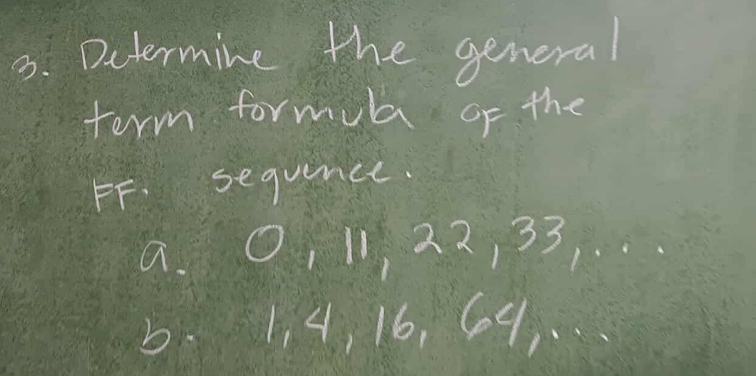 3. Determine the general
term formula of the
FF. sequence.
a. 0, 11, 22, 33, ...
b. 1, 4, 16, 64, ...